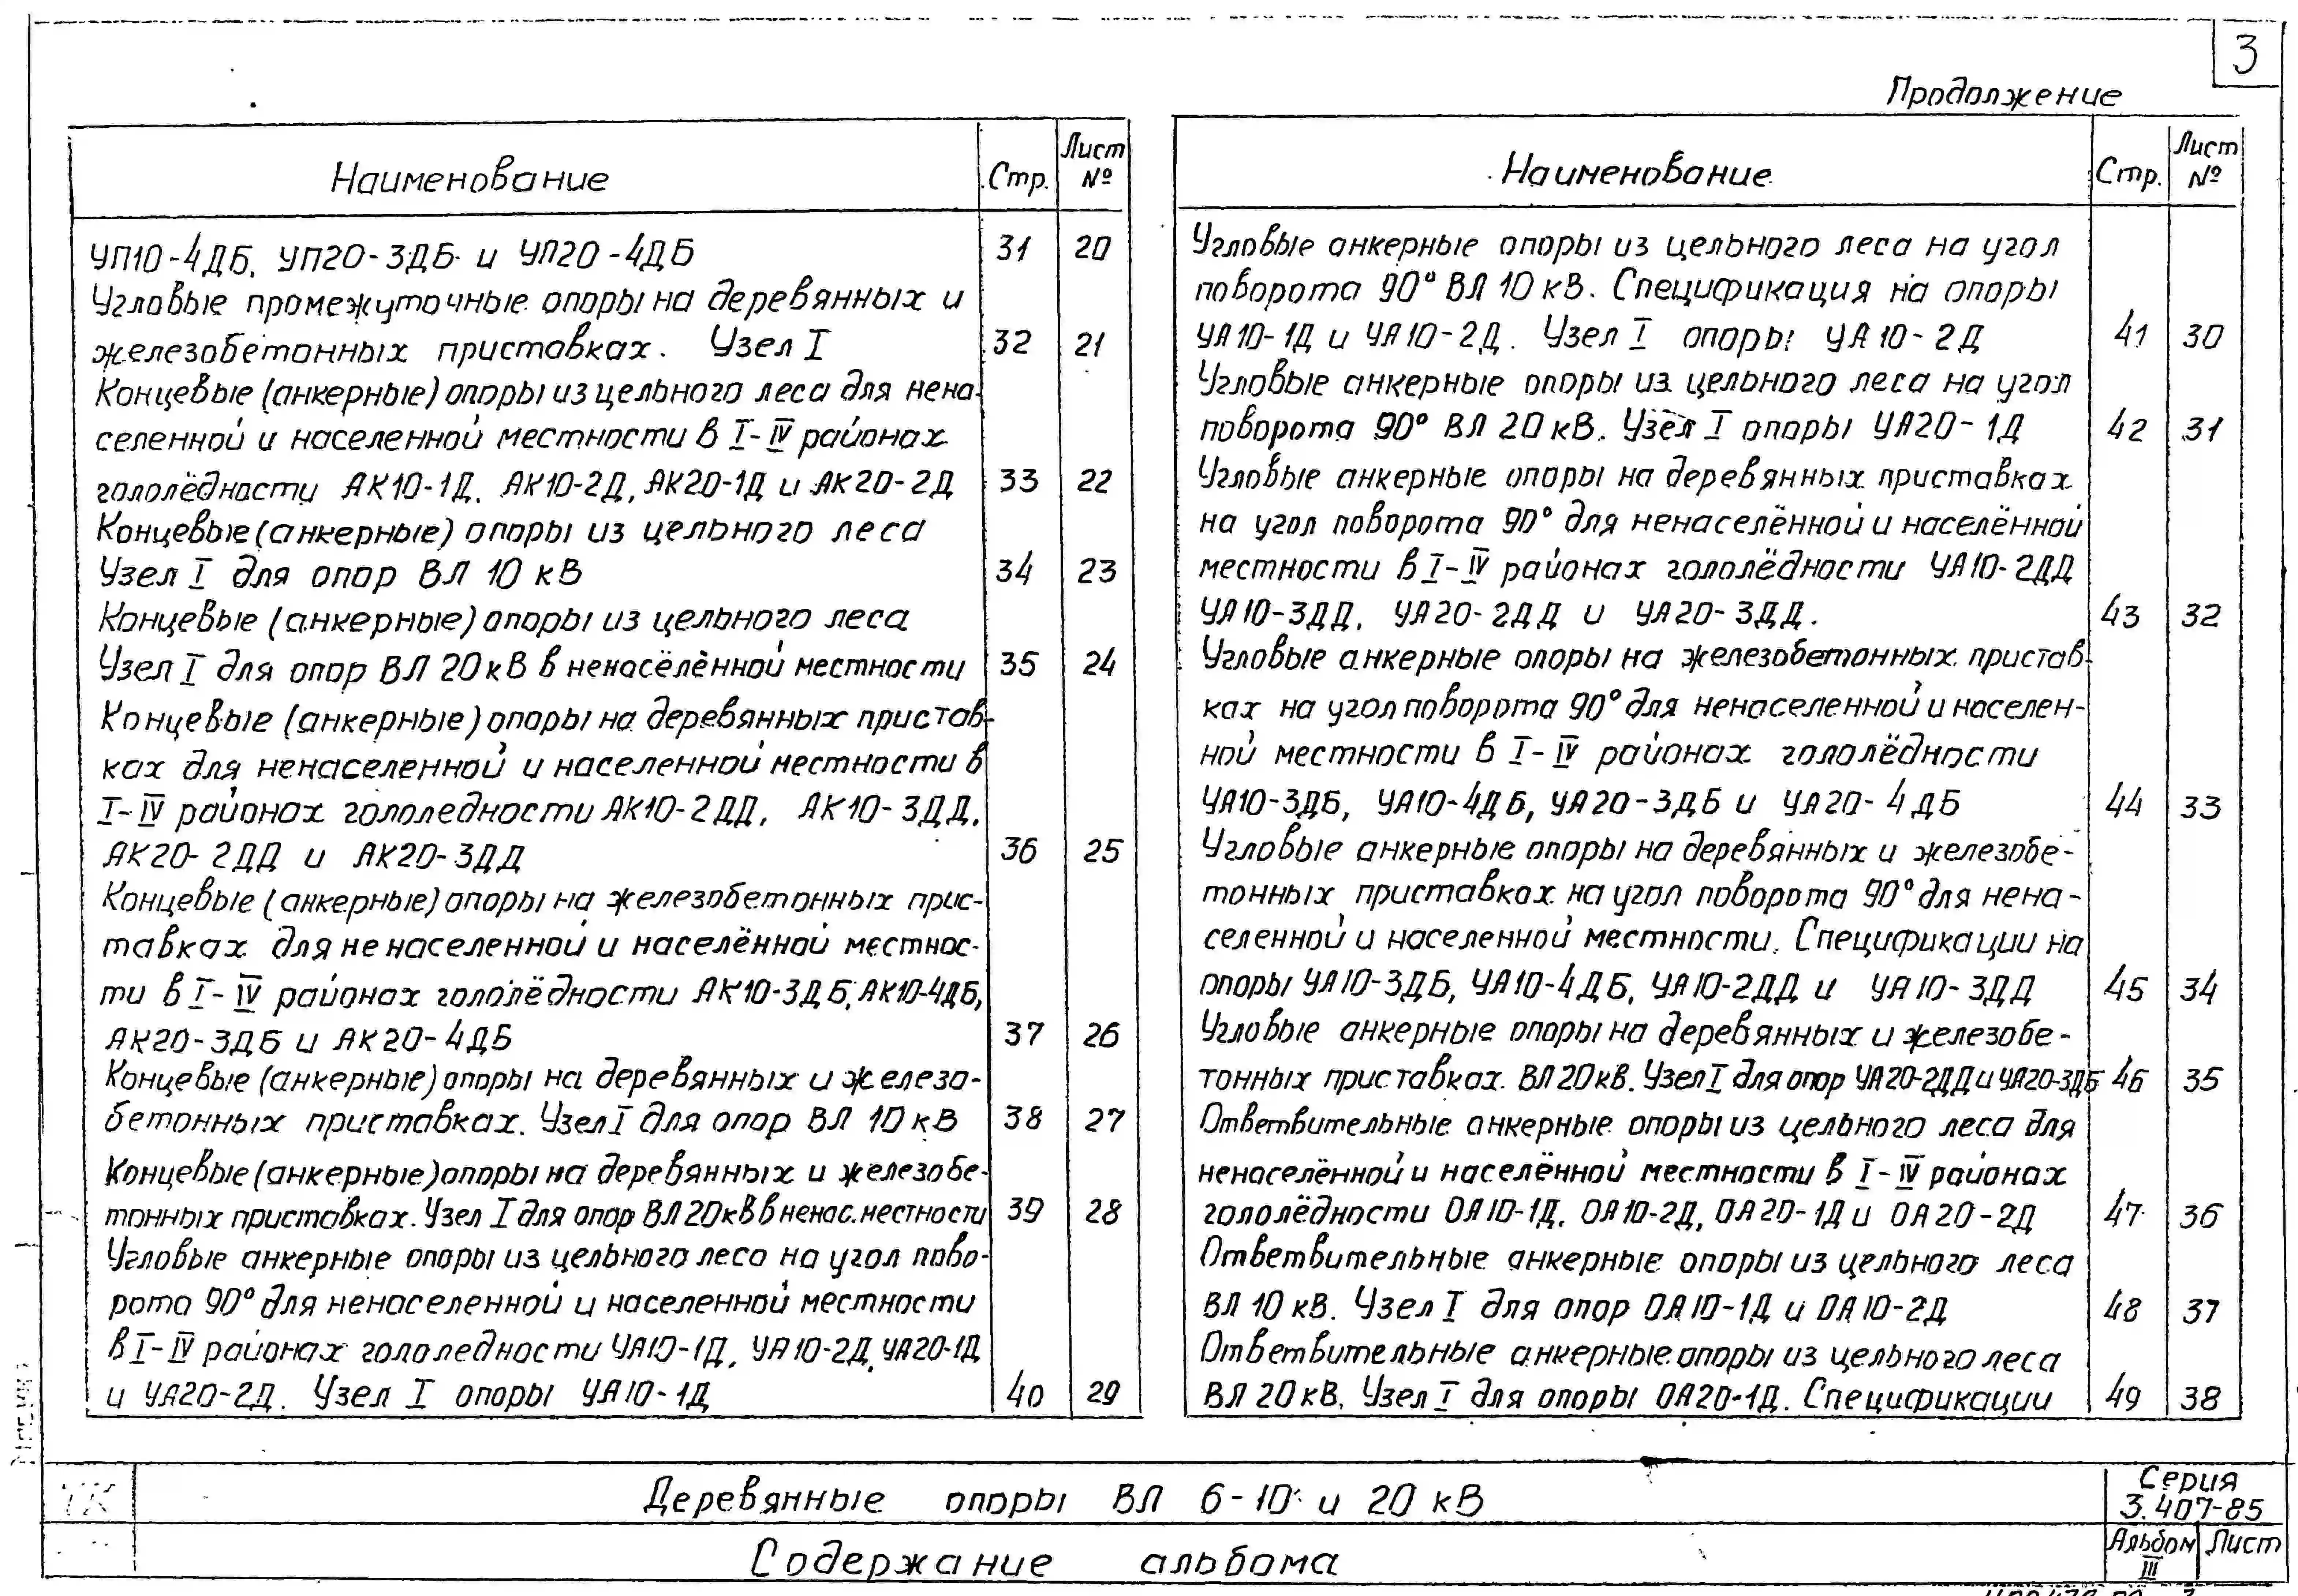 3
Продолжение
Наименование Стр. Лист №
УП10-4ДБ, УП20-3ДБ и УП20-4ДБ 31 20
Угловые промежуточные опоры на деревянных и
железобетонных приставках. Узел I 32 21
Концевые (анкерные) опоры из цельного леса для нена-
селенной и населенной местности в I-IV районах
гололёдности АК10-1Д, АК10-2Д, АК20-1Д и АК20-2Д 33 22
Концевые (анкерные) опоры из цельного леса
Узел I для опор ВЛ 10 кВ 34 23
Концевые (анкерные) опоры из цельного леса
Узел I для опор ВЛ 20 кВ в ненасёлённой местности 35 24
Концевые (анкерные) опоры на деревянных пристав-
ках для ненаселенной и населенной местности в
I-IV районах гололедности АК10-2ДД, АК10-3ДД,
АК20-2ДД и АК20-3ДД 36 25
Концевые (анкерные) опоры на железобетонных прис-
тавках для ненаселенной и населённой местнос-
ти в I-IV районах гололёдности АК10-3ДБ, АК10-4ДБ,
АК20-3ДБ и АК20-4ДБ 37 26
Концевые (анкерные) опоры на деревянных и железо-
бетонных приставках. Узел I для опор ВЛ 10 кВ 38 27
Концевые (анкерные) опоры на деревянных и железобе-
тонных приставках. Узел I для опор ВЛ 20кВ в ненас. местности 39 28
Угловые анкерные опоры из цельного леса на угол пово-
рота 90° для ненаселенной и населенной местности
в I-IV районах гололедности УА10-1Д, УА10-2Д, УА20-1Д
и УА20-2Д. Узел I опоры УА10-1Д 40 29
Наименование Стр. Лист №
Угловые анкерные опоры из цельного леса на угол
поворота 90° ВЛ 10 кВ. Спецификация на опоры
УА10-1Д и УА10-2Д. Узел I опоры УА10-2Д 41 30
Угловые анкерные опоры из цельного леса на угол
поворота 90° ВЛ 20 кВ. Узел I опоры УА20-1Д 42 31
Угловые анкерные опоры на деревянных приставках
на угол поворота 90° для ненаселённой и населённой
местности в I-IV районах гололёдности УА10-2ДД
УА10-3ДД, УА20-2ДД и УА20-3ДД. 43 32
Угловые анкерные опоры на железобетонных пристав-
ках на угол поворота 90° для ненаселенной и населен-
ной местности в I-IV районах гололёдности
УА10-3ДБ, УА10-4ДБ, УА20-3ДБ и УА20-4ДБ 44 33
Угловые анкерные опоры на деревянных и железобе-
тонных приставках на угол поворота 90° для нена-
селенной и населенной местности. Спецификации на
опоры УА10-3ДБ, УА10-4ДБ, УА10-2ДД и УА10-3ДД 45 34
Угловые анкерные опоры на деревянных и железобе-
тонных приставках ВЛ 20 кВ. Узел I для опор УА20-2ДД и УА20-3ДБ 46 35
Ответвительные анкерные опоры из цельного леса для
ненаселённой и населённой местности в I-IV районах
гололёдности ОА10-1Д, ОА10-2Д, ОА20-1Д и ОА20-2Д 47 36
Ответвительные анкерные опоры из цельного леса
ВЛ 10 кВ. Узел I для опор ОА10-1Д и ОА10-2Д 48 37
Ответвительные анкерные опоры из цельного леса
ВЛ 20 кВ. Узел I для опоры ОА20-1Д. Спецификации 49 38
ТК
Деревянные опоры ВЛ 6-10 и 20 кВ
Серия
3.407-85
Содержание альбома
Альбом III Лист